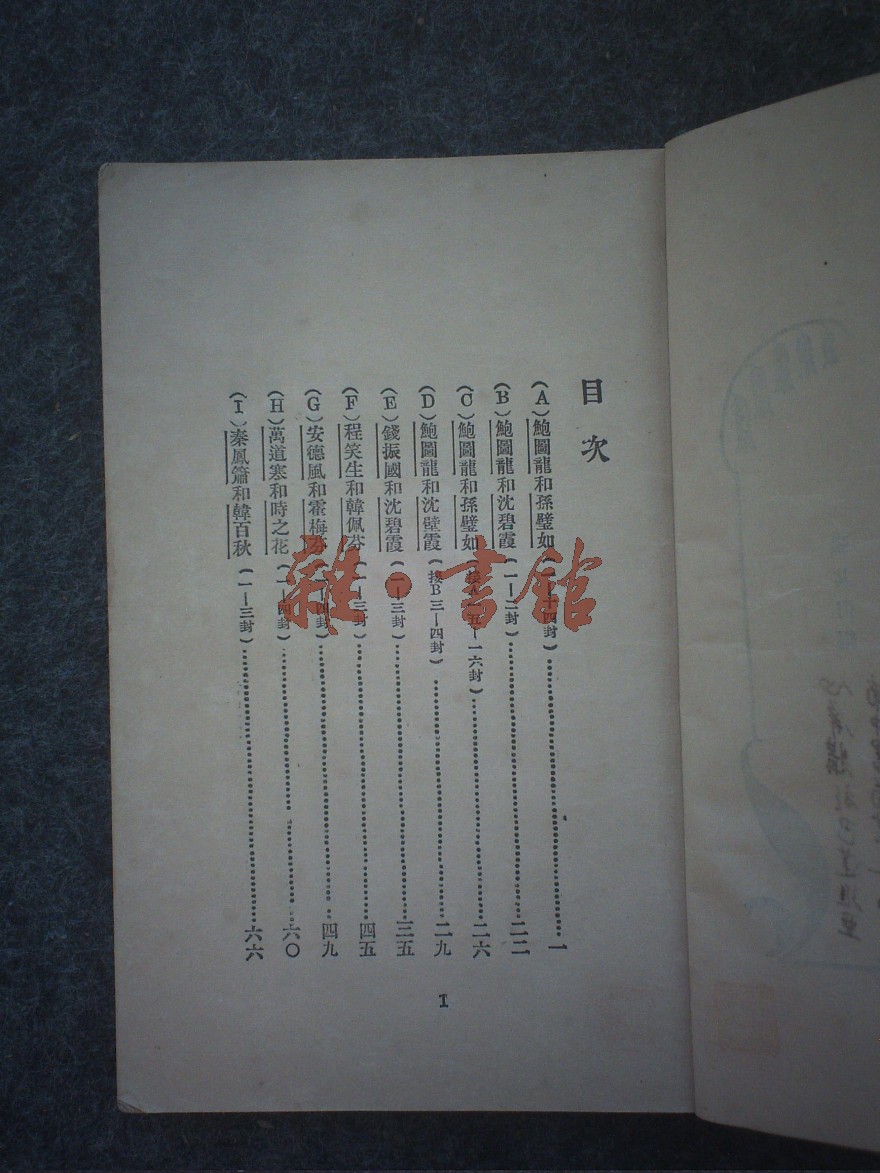 目次
(A)鮑圖龍和孫璧如(一—十四封)……一
(B)鮑圖龍和沈碧霞(一—二封)……二二
(C)鮑圖龍和孫璧如(接A一五—一六封)……二六
(D)鮑圖龍和沈壁霞(接B三—四封)……二九
(E)錢振國和沈碧霞(一—三封)……三五
(F)程笑生和韓佩芬(一—三封)……四五
(G)安德風和霍梅芬(一—四封)……四九
(H)萬道寒和時之花(一—四封)……六〇
(I)秦鳳簫和韓百秋(一—三封)……六六
I
雜·書館